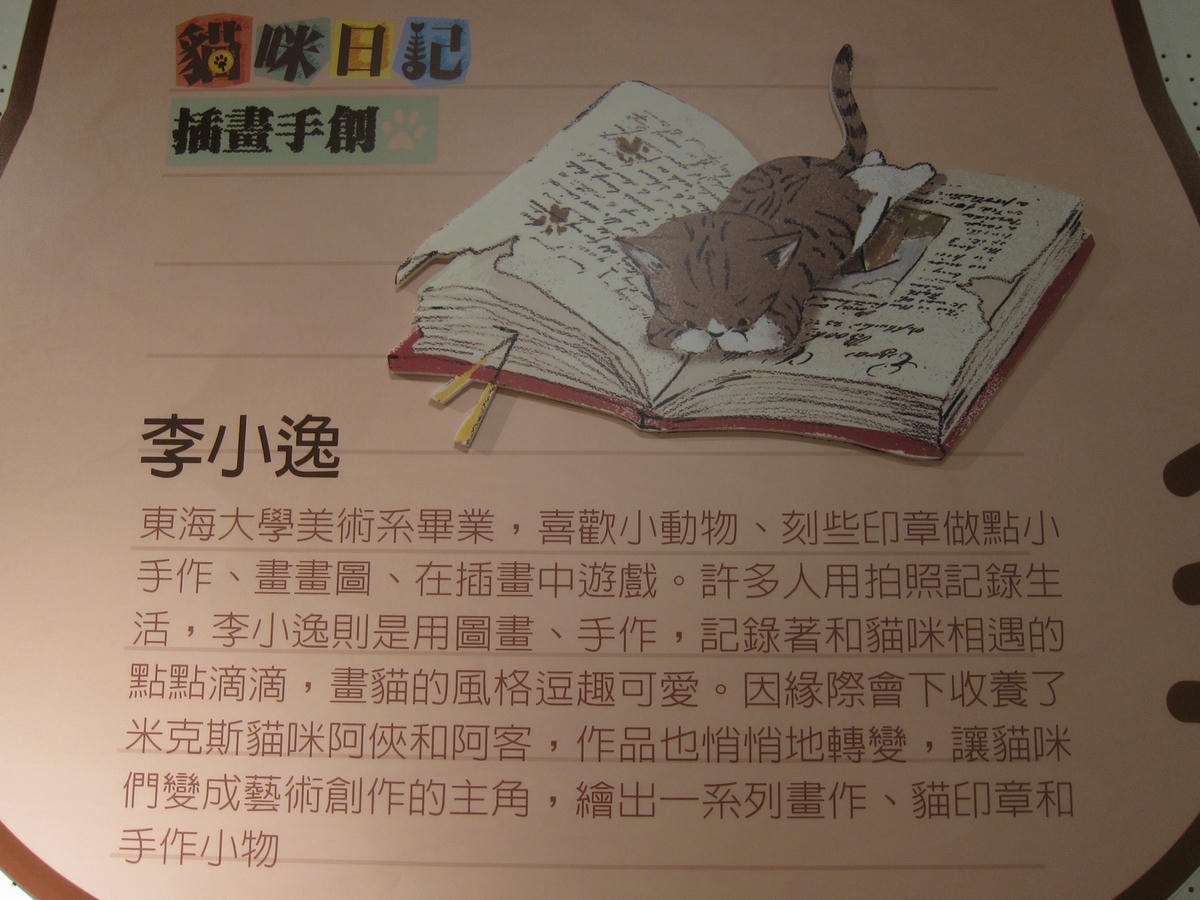 貓咪日記
插畫手創
李小逸
東海大學美術系畢業，喜歡小動物、刻些印章做點小
手作、畫畫圖、在插畫中遊戲。許多人用拍照記錄生
活，李小逸則是用圖畫、手作，記錄著和貓咪相遇的
點點滴滴，畫貓的風格逗趣可愛。因緣際會下收養了
米克斯貓咪阿俠和阿客，作品也悄悄地轉變，讓貓咪
們變成藝術創作的主角，繪出一系列畫作、貓印章和
手作小物